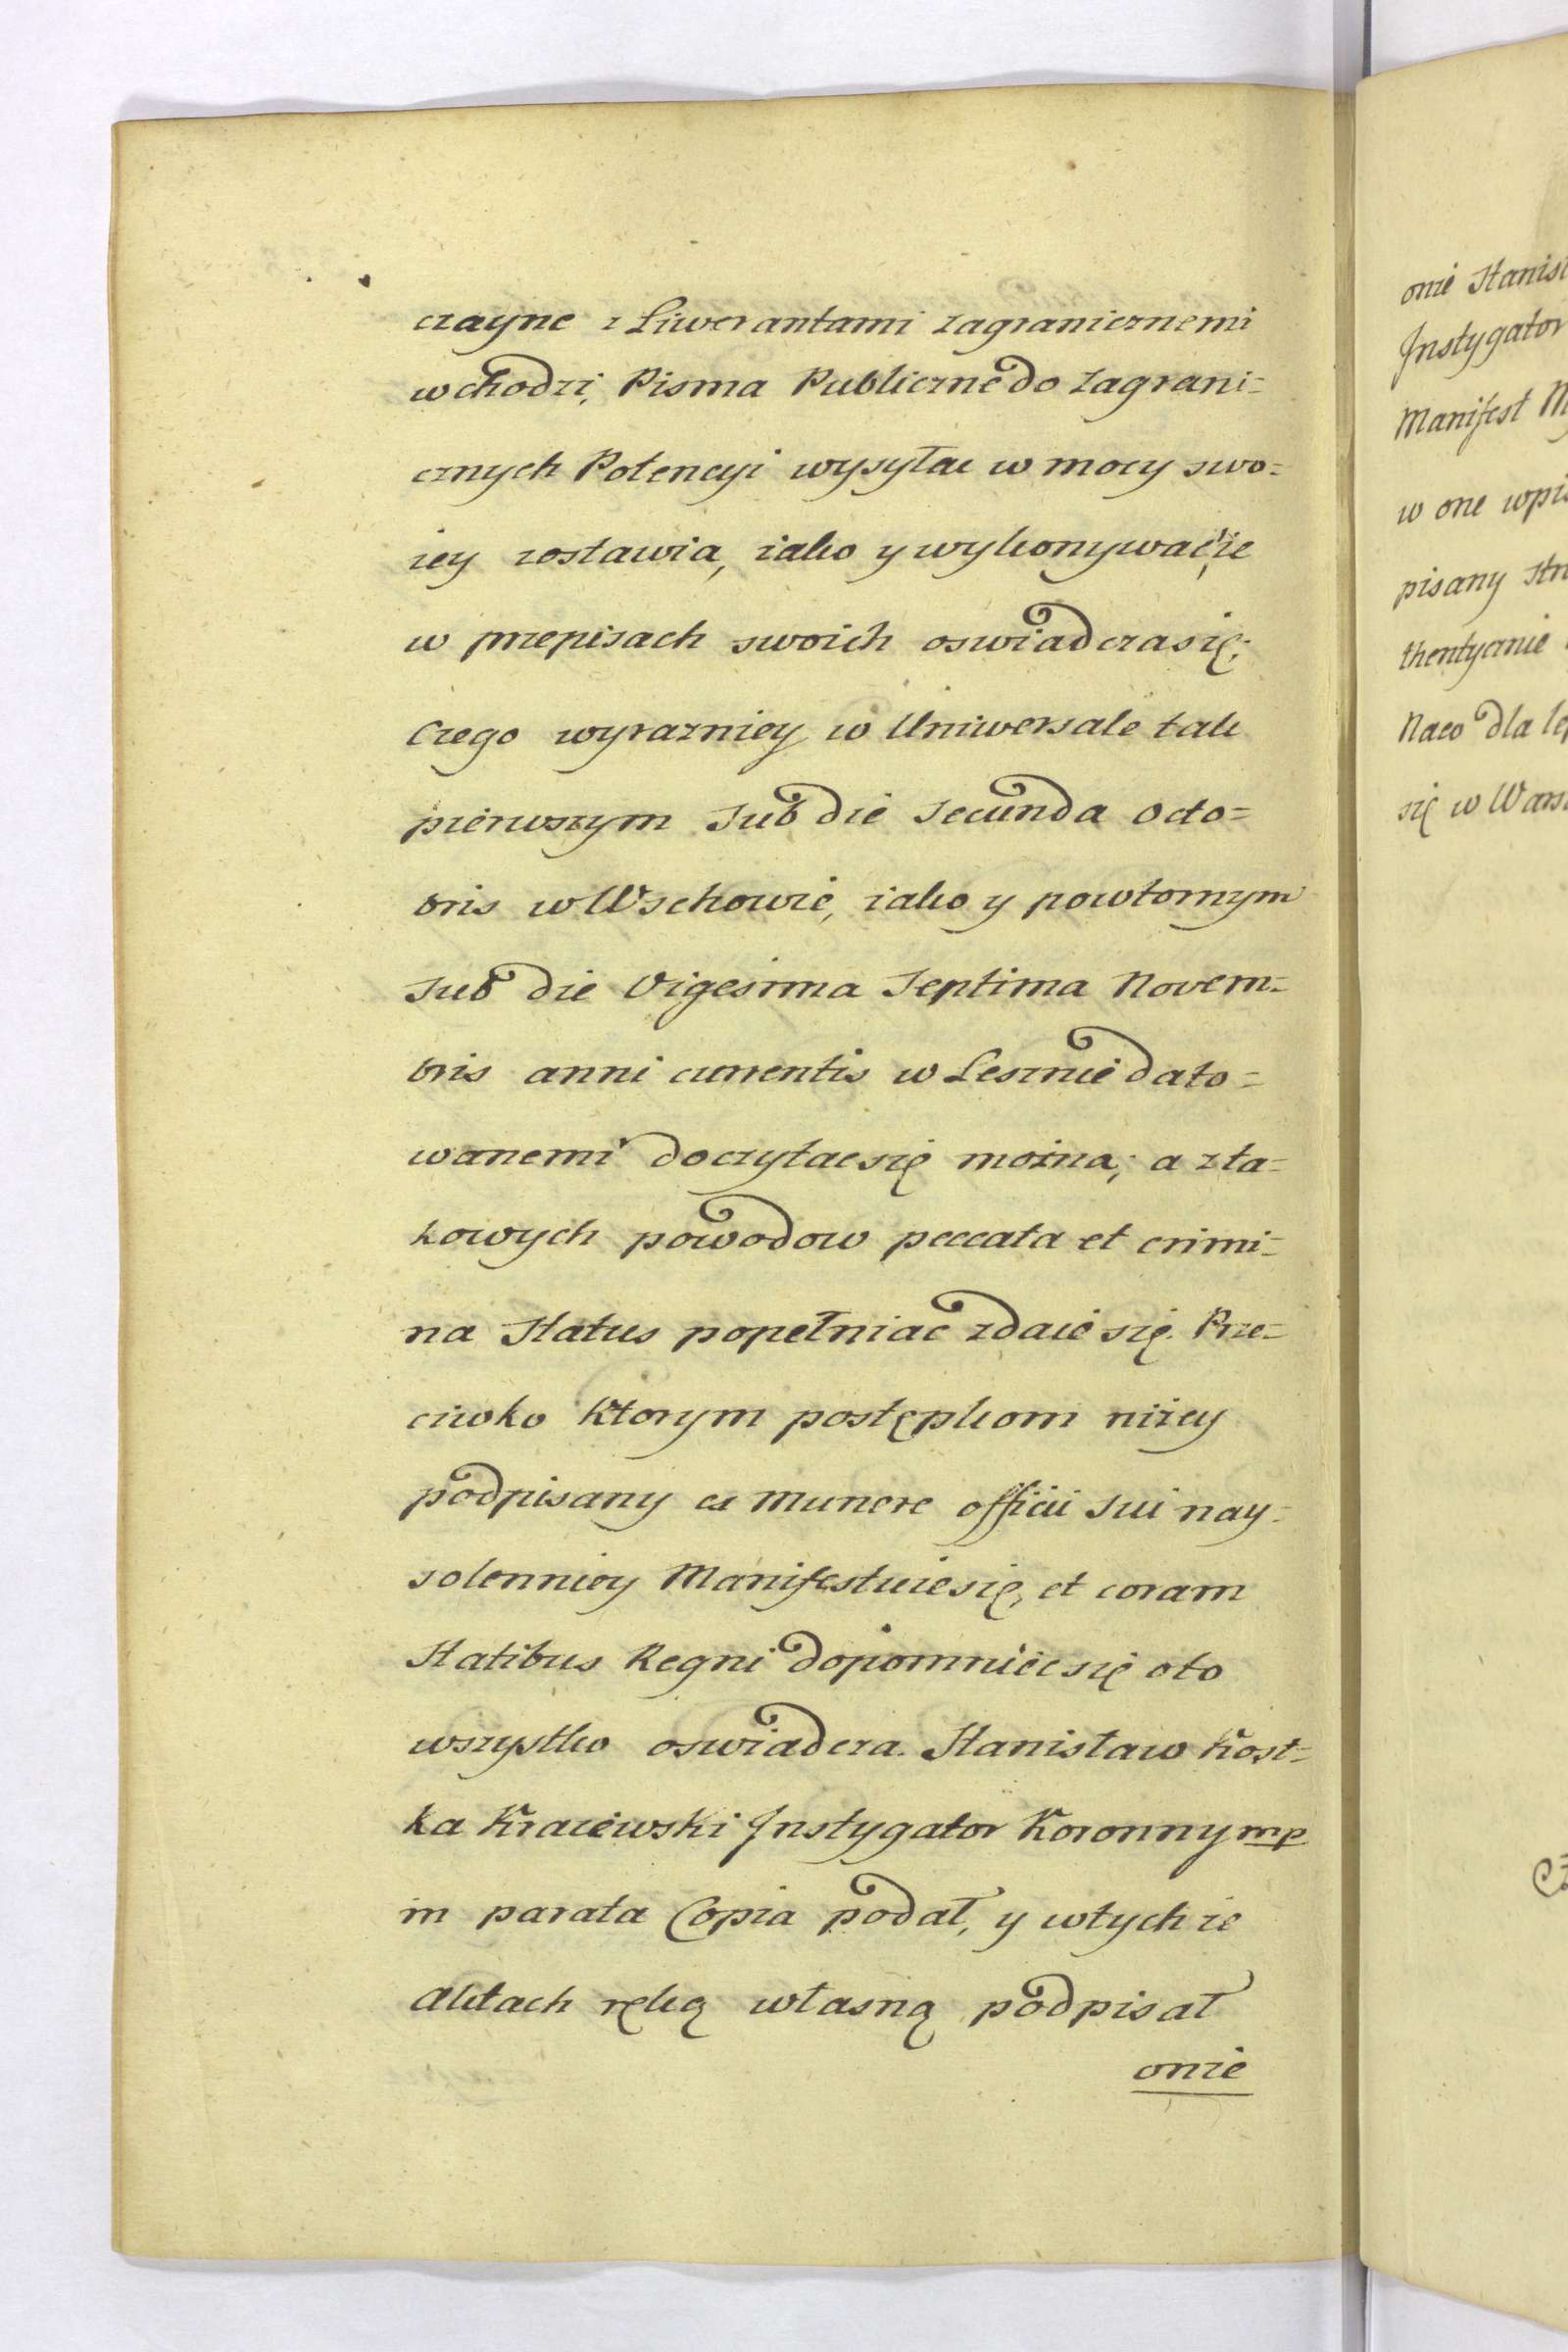 czayne z Liwerantami zagranicznemi
wchodzi, Pisma Publiczne do zagrani=
cznych Potencyi wysyłac w mocy swo=
iey zostawia, iako y wykonywać ie
w przepisach swoich oswiadcza się;
czego wyrazniey w Uniwersale tak
pierwszym Sub die Secunda Octo=
bris w Wschowie, iako y powtornym
Sub die Vigesima Septima Novem=
bris anni currentis w Lesznie dato=
wanemi doczytac się można; a z ta=
kowych powodow peccata et crimi=
na Status popełniac zdaie się. Prze=
ciwko ktorym postępkom niżey
podpisany ex munere officii Sui nay=
solenniey Manifestuie się, et coram
Statibus Regni dopomniec się oto
wszystko oswiadcza. Stanisław Kost=
ka Kraiewski Instygator Koronny mp
in parata Copia podał, y w tychże
Aktach ręką własną podpisał
onże
onże Stanis
Instygator
Manifest M
w one wpis
pisany Str
thentycznie
Naco dla lep
się w Wars